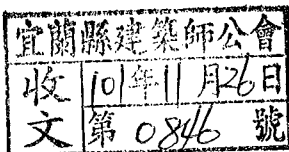 宜蘭縣建築師公會
收文
101年11月26日
第0846號